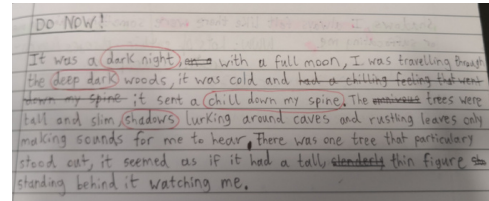 DO NOW!
It was a dark night, with a full moon, I was travelling through
the deep dark woods, it was cold and had a chilling feeling that went
down my spine it sent a chill down my spine. The trees were
tall and slim, shadows lurking around caves and rustling leaves only
making sounds for me to hear. There was one tree that particulary
stood out, it seemed as if it had a tall, slenderly thin figure
standing behind it watching me.